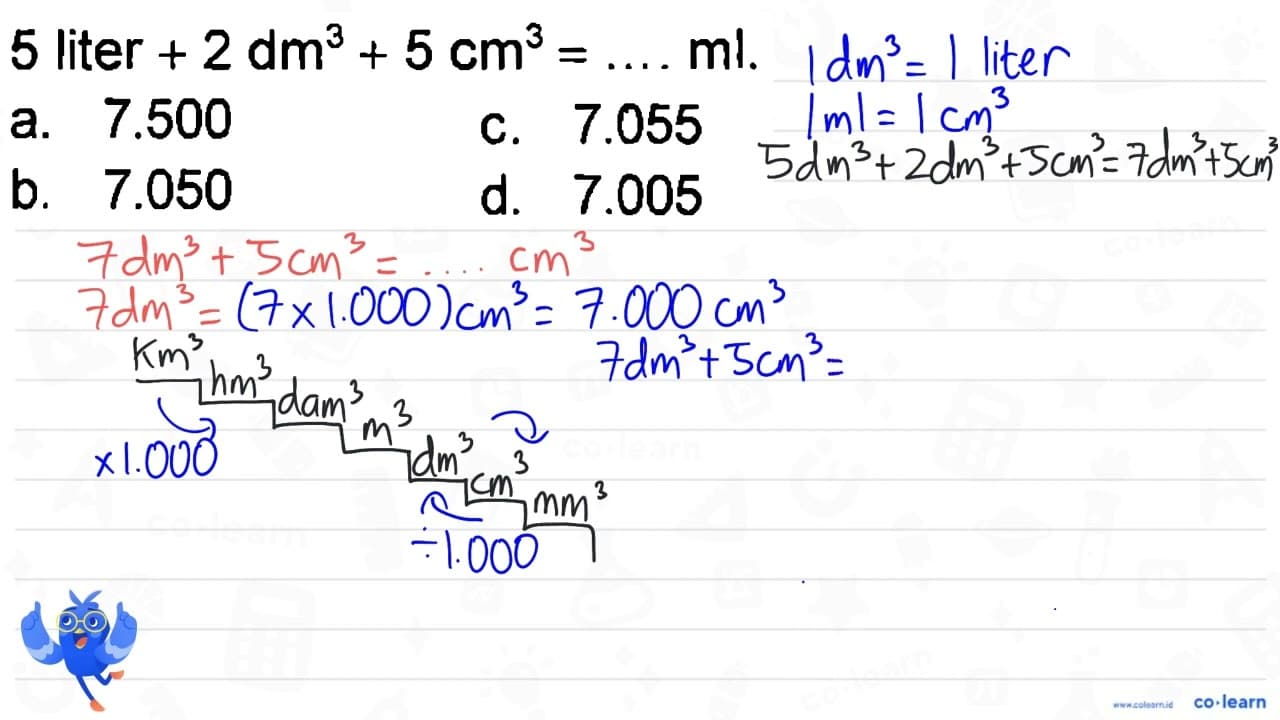 5 liter + 2 dm³ + 5 cm³ = .... ml.
a. 7.500
b. 7.050
c. 7.055
d. 7.005
1 dm³ = 1 liter
1 ml = 1 cm³
5dm³ + 2dm³ + 5cm³ = 7dm³ + 5cm³
7dm³ + 5cm³ = .... cm³
7dm³ = (7 x 1.000) cm³ = 7.000 cm³
7dm³ + 5cm³ =
Km³
hm³
dam³
m³
dm³
cm³
mm³
x 1.000
÷ 1.000
co·learn
co·learn
co·learn
co·learn
www.colearn.id co·learn